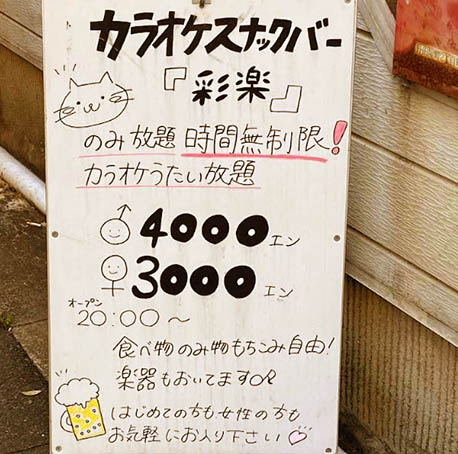 カラオケスナックバー
『彩楽』
のみ放題 時間無制限!
カラオケうたい放題
♂ 4000エン
♀ 3000エン
オープン
20:00〜
食べ物のみ物もちこみ自由!
楽器もおいてます
はじめての方も女性の方も
お気軽にお入り下さい♡